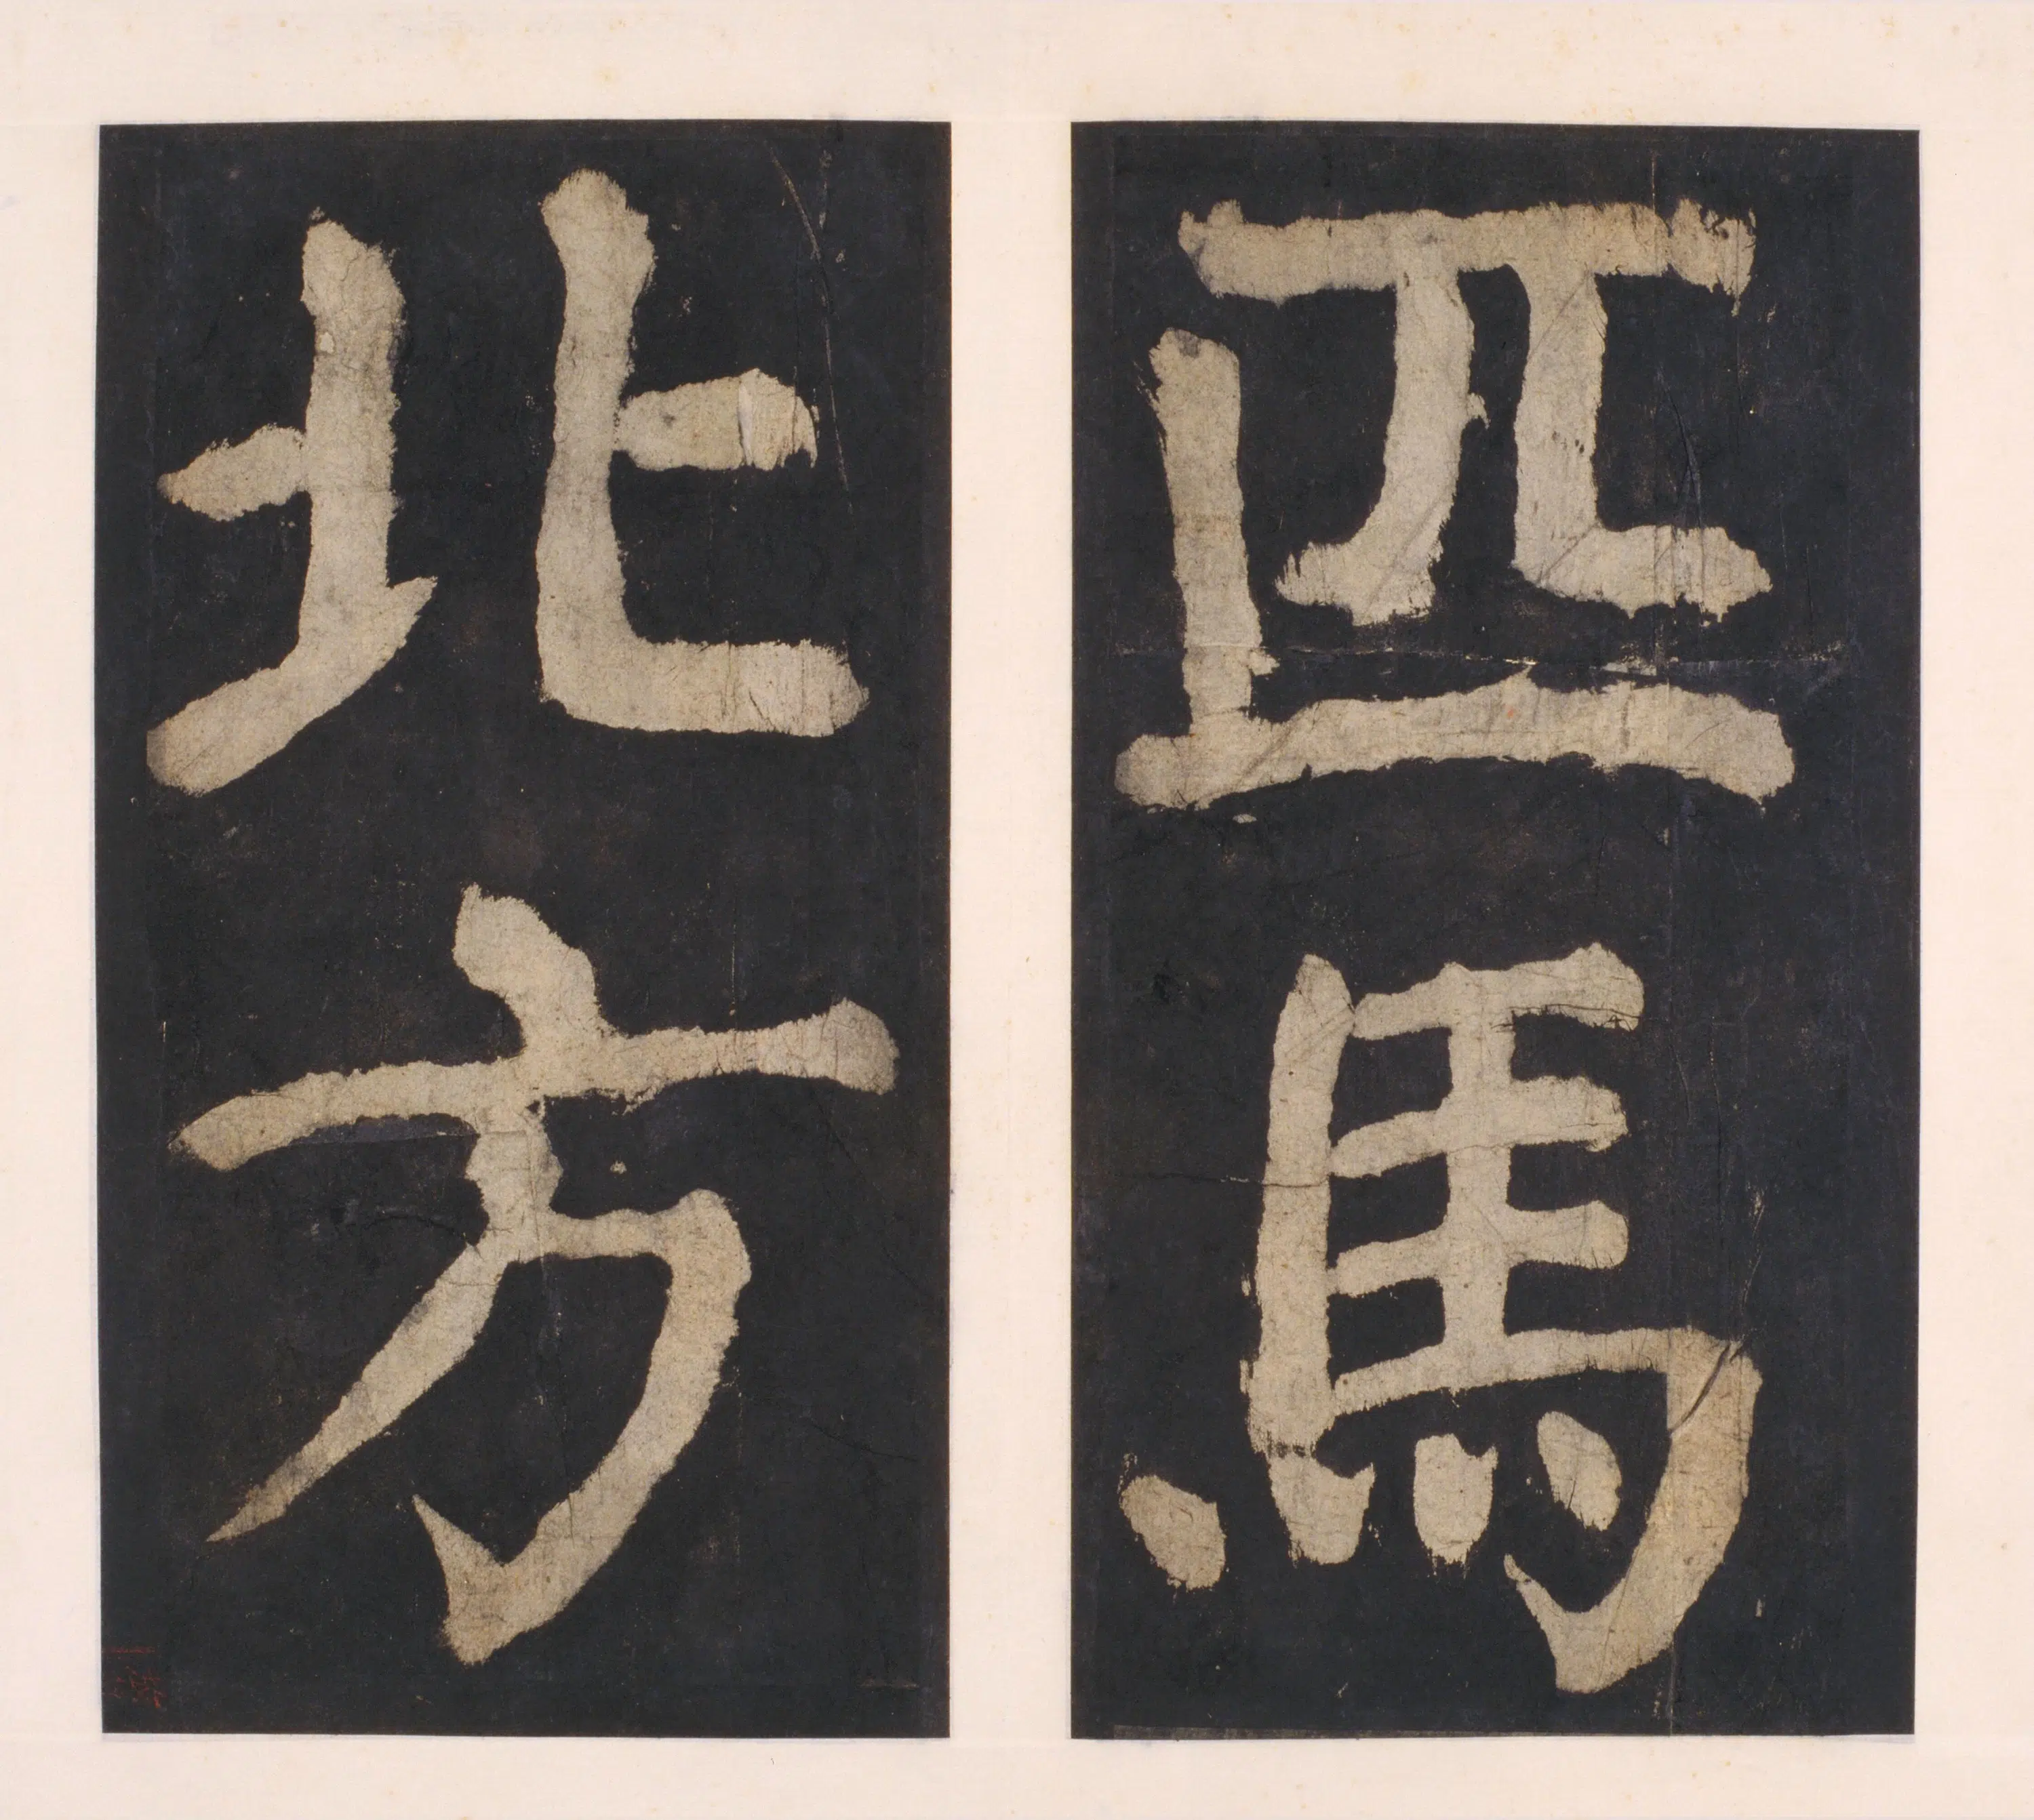 匹馬
北方